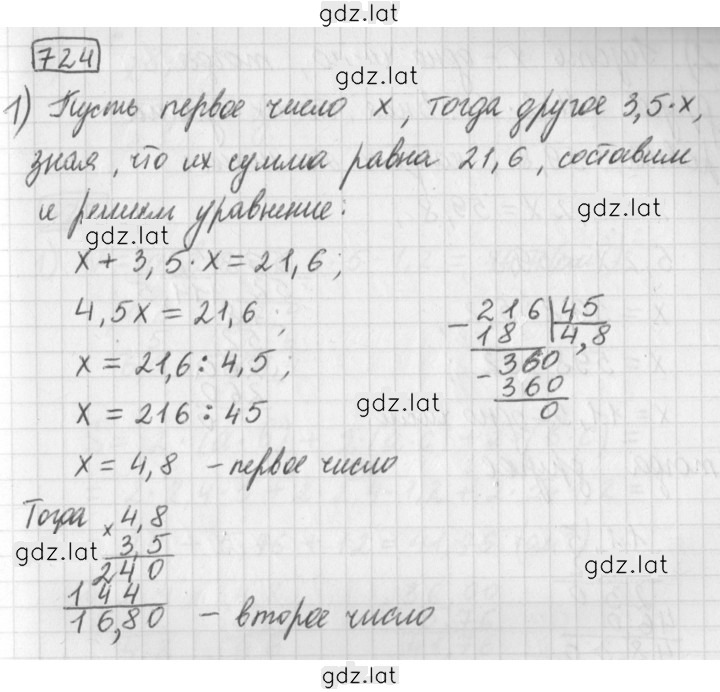 gdz.lat
724
gdz.lat
1) Пусть первое число x, тогда другое 3,5·x,
зная, что их сумма равна 21,6, составим
и решим уравнение:
gdz.lat
gdz.lat
x + 3,5·x = 21,6;
4,5x = 21,6;
x = 21,6 : 4,5;
x = 216 : 45
x = 4,8 – первое число
- 216 | 45
18 4,8
- 360
360
0
gdz.lat
Тогда × 4,8
3,5
240
144
16,80 – второе число
gdz.lat
gdz.lat
gdz.lat